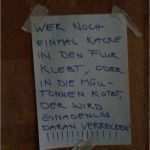 WER NOCH
EINMAL KACKE
IN DEN FLUR
KLEBT, ODER
IN DIE MÜLL-
TONNEN KOTET,
DER WIRD
GNADENLOS
DARAN VERRECKEN
!!!!!!!!!!!!